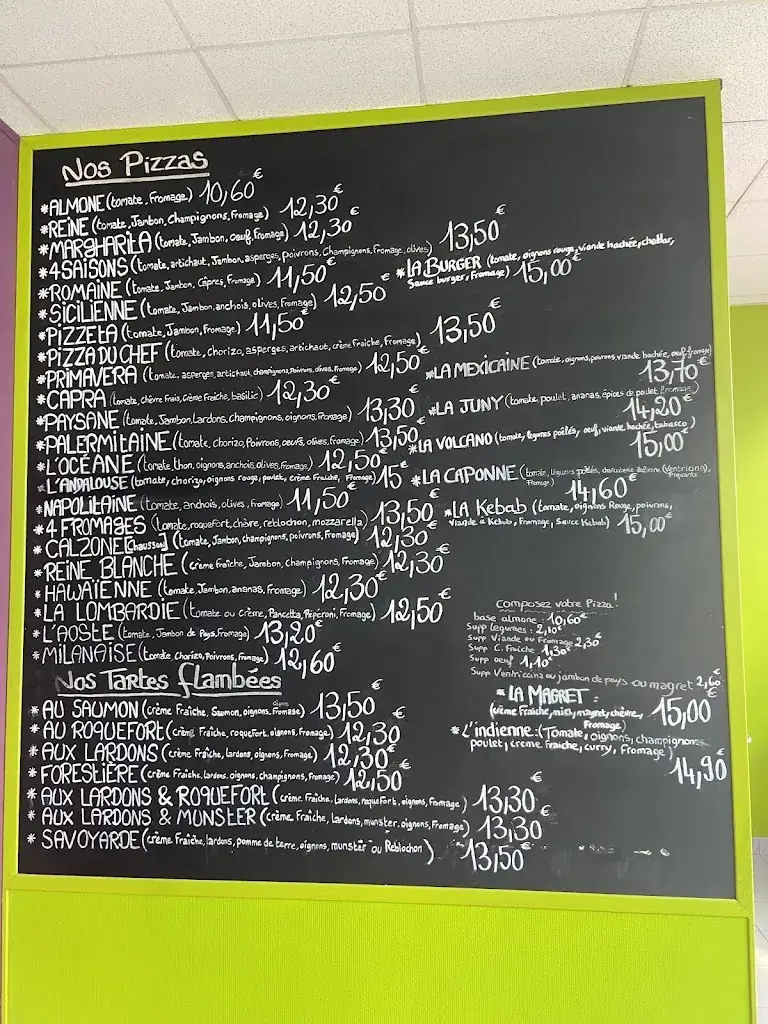 Nos Pizzas
*ALMONE (tomate, Fromage) 10,60€
*REINE (tomate, Jambon, Champignons, Fromage) 12,30€
*MARGHARITA (tomate, Jambon, oeuf, Fromage) 12,30€
*4 SAISONS (tomate, artichaut, Jambon, asperges, poivrons, Champignons, Fromage, olives) 13,50€
*ROMAINE (tomate, Jambon, Câpres, Fromage) 11,50€
*SICILIENNE (tomate, Jambon, anchois, olives, Fromage) 12,50€
*PIZZETA (tomate, Jambon, Fromage) 11,50€
*PIZZA DU CHEF (tomate, chorizo, asperges, artichaut, crème Fraîche, Fromage) 13,50€
*PRIMAVERA (tomate, asperges, artichaut, champignons, Poivrons, olives, Fromage) 12,50€
*CAPRA (tomate, chèvre Frais, Crème Fraîche, basilic) 12,30€
*PAYSANE (tomate, Jambon, Lardons, champignons, oignons, Fromage) 13,30€
*PALERMITAINE (tomate, chorizo, Poivrons, oeufs, olives, Fromage) 13,50€
*L'OCÉANE (tomate, thon, oignons, anchois, olives, Fromage) 12,50€
*L'ANDALOUSE (tomate, chorizo, oignons rouge, poulet, crème Fraîche, Fromage) 15€
*NAPOLITAINE (tomate, anchois, olives, Fromage) 11,50€
*4 FROMAGES (tomate, roquefort, chèvre, reblochon, mozzarella) 13,50€
*CALZONE [Chausson] (tomate, Jambon, champignons, poivrons, Fromage) 12,30€
*REINE BLANCHE (crème fraîche, Jambon, champignons, Fromage) 12,30€
*HAWAÏENNE (tomate, Jambon, ananas, Fromage) 12,30€
*LA LOMBARDIE (tomate ou crème, Pancetta, Pepéroni, Fromage) 12,50€
*L'AOSTE (tomate, Jambon de Pays, Fromage) 13,20€
*MILANAISE (tomate, Chorizo, Poivrons, Fromage) 12,60€
*LA BURGER (tomate, oignons rouge, viande hachée, cheddar,
Sauce burger, Fromage) 15,00€
*LA MEXICAINE (tomate, oignons, poivrons, viande hachée, oeuf, fromage)
13,70€
*LA JUNY (tomate, poulet, ananas, épices de poulet, fromage)
14,20€
*LA VOLCANO (tomate, légumes poêlés, oeuf, viande hachée, tabasco)
15,00€
*LA CAPONNE (tomate, légumes poêlés, charcuterie italienne (Ventricina), Piquante
Fromage) 14,60€
*LA Kebab (tomate, oignons Rouge, poivrons,
viande à Kebab, Fromage, Sauce Kebab) 15,00€
Composez votre Pizza!
base almone : 10,60€
Supp légumes : 2,10€
Supp Viande ou Fromage 2,30€
Supp C. Fraîche 1,30€
Supp oeuf 1,10€
Supp Ventriccina ou jambon de pays ou magret 2,60€
*LA MAGRET :
(crème Fraîche, miel, magret, chèvre,
Fromage) 15,00€
*L'indienne : (Tomate, oignons, champignons
poulet, creme fraîche, curry, Fromage)
14,90€
Nos Tartes flambées
*AU SAUMON (crème Fraîche, Saumon, oignons, Fromage) 13,50€
*AU ROQUEFORT (crème Fraîche, roquefort, oignons, Fromage) 12,30€
*AUX LARDONS (crème Fraîche, lardons, oignons, Fromage) 12,30€
*FORESTIÈRE (crème Fraîche, lardons, oignons, champignons, Fromage) 12,50€
*AUX LARDONS & ROQUEFORT (crème Fraîche, Lardons, roquefort, oignons, Fromage) 13,30€
*AUX LARDONS & MUNSTER (crème Fraîche, lardons, munster, oignons, Fromage) 13,30€
*SAVOYARDE (crème Fraîche, lardons, pomme de terre, oignons, munster ou Reblochon) 13,50€